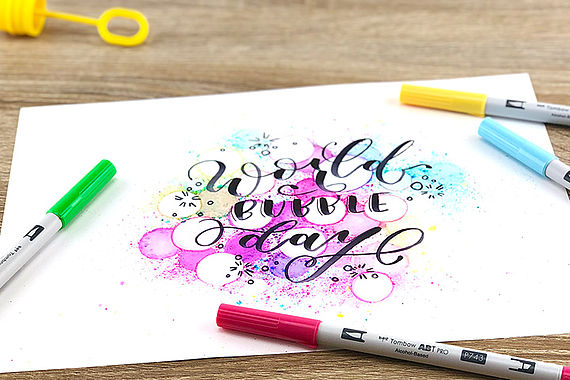 World
BUBBLE
day
Tombow ABT PRO
Alcohol-Based
P743